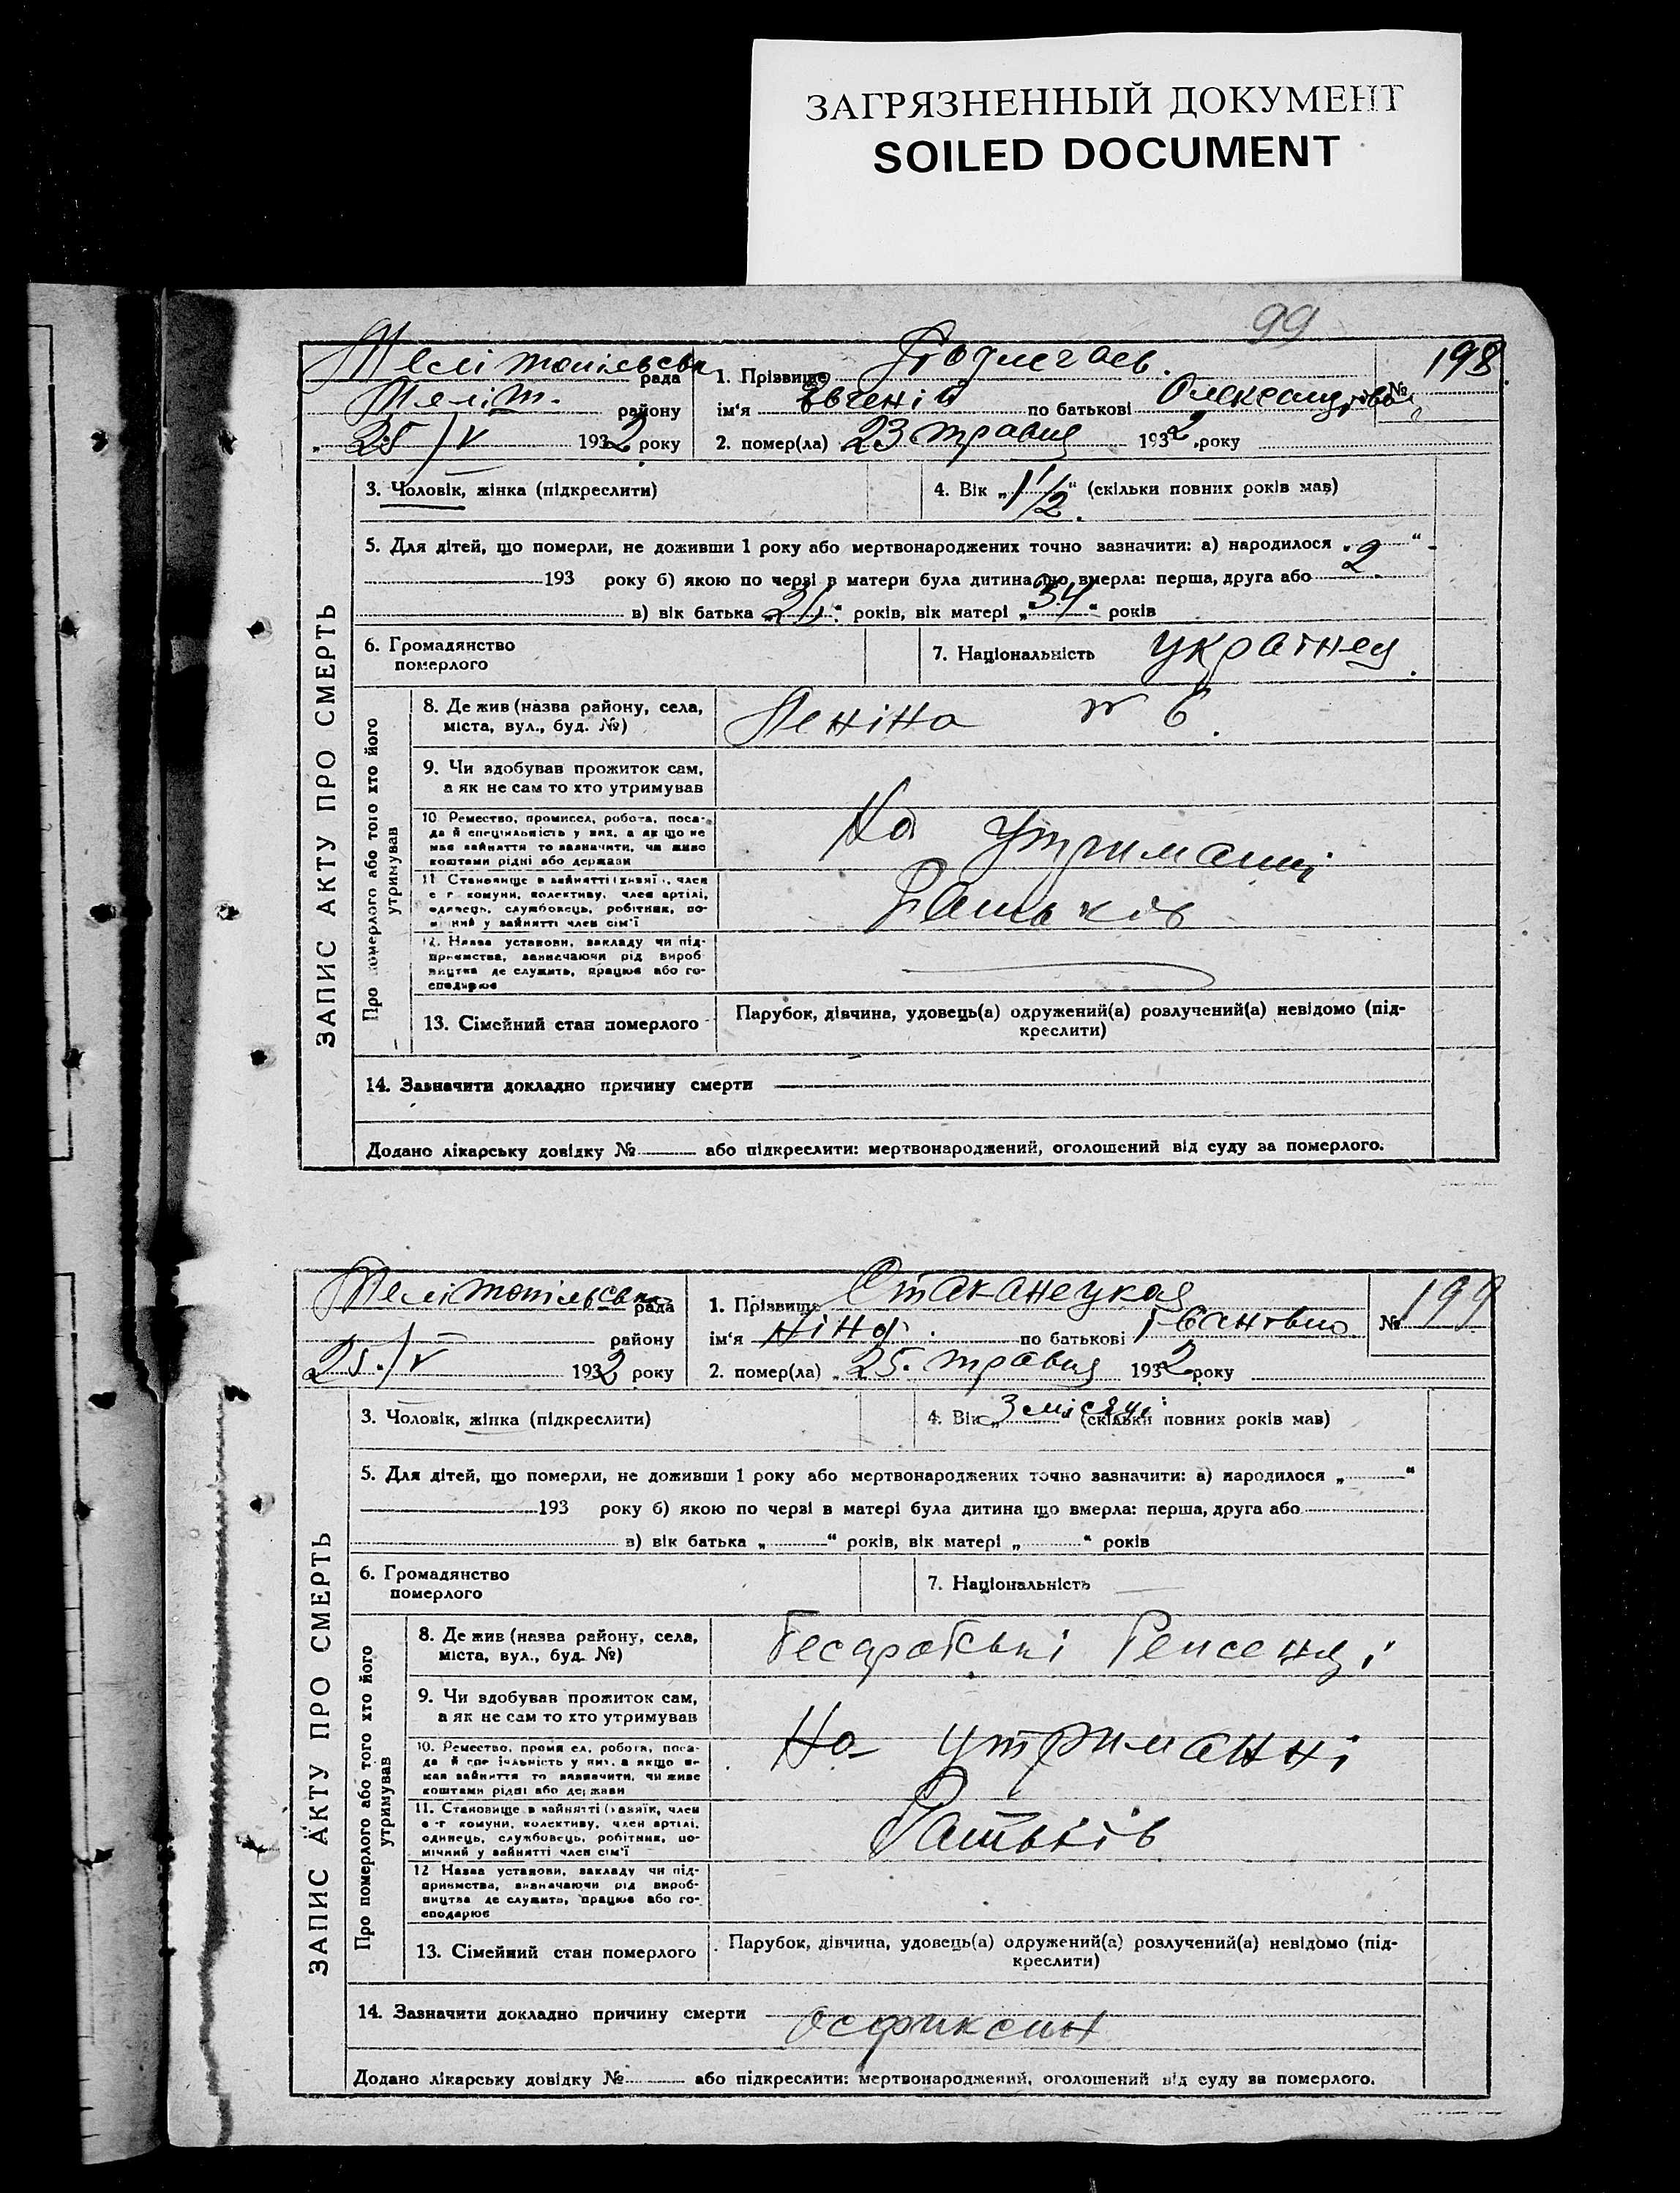 ЗАГРЯЗНЕННЫЙ ДОКУМЕНТ
SOILED DOCUMENT
99
Мелітопільськ рада
Меліт. району
25/V 1932 року
1. Прізвище
№ 198
ім'я Евгеній по батькові
2. помер(ла) 23 травня 1932 року
3. Чоловік, жінка (підкреслити)
4. Вік „1 1/2“ (скільки повних років мав)
5. Для дітей, що померли, не доживши 1 року або мертвонароджених точно зазначити: а) народилося „2“
193 року б) якою по черзі в матери була дитина що вмерла: перша, друга або
в) вік батька „ “ років, вік матері „34“ років
6. Громадянство
померлого
7. Національність українец
ЗАПИС АКТУ ПРО СМЕРТЬ
Про померлого або того хто його
утримував
8. Де жив (назва району, села,
міста, вул., буд. №)
Леніна № 6.
9. Чи здобував прожиток сам,
а як не сам то хто утримував
10 Ремество, промисел, робота, поса-
да й спеціяльність у них, а як що не
має зайняття то зазначити, чи живе
коштами рідні або держави
На утриманні
11. Становище в зайнятті (хазяї , член
с г комуни, колективу, член артілі,
одинець, службовець, робітник, по-
мічний у зайнятті член сім'ї
Батьків
12. Назва установи, закладу чи під-
приємства, зазначаючи рід вироб
ництва де служить, працює або го-
сподарює
13. Сімейний стан померлого
Парубок, дівчина, удовець(а) одружений(а) розлучений(а) невідомо (під-
креслити)
14. Зазначити докладно причину смерти
Додано лікарську довідку № або підкреслити: мертвонароджений, оголошений від суду за померлого.
Мелітопільськ рада
району
25./V 1932 року
1. Прізвище Стаканецкая
№ 199
ім'я Ніна. по батькові Івановно
2. помер(ла) „25. травня 1932 року
3. Чоловік, жінка (підкреслити)
4. Вік „3 місяці“ (скільки повних років мав)
5. Для дітей, що померли, не доживши 1 року або мертвонароджених точно зазначити: а) народилося „ “
193 року б) якою по черзі в матері була дитина що вмерла: перша, друга або
в) вік батька „ “ років, вік матері „ “ років
6. Громадянство
померлого
7. Національність
ЗАПИС АКТУ ПРО СМЕРТЬ
Про померлого або того хто його
утримував
8. Де жив (назва району, села,
міста, вул., буд. №)
9. Чи здобував прожиток сам,
а як не сам то хто утримував
10. Ремество, промисел, робота, поса-
да й спеціяльність у них, а якщо не-
має зайняття то зазначити, чи живе
коштами рідні або держави
На утриманні
11. Становище в зайнятті (хазяїн, член
с-г комуни, колективу, член артілі,
одинець, службовець, робітник, по-
мічний у зайнятті член сім'ї
Батьків
12 Назва установи, закладу чи під-
приємства, зазначаючи рід вироб-
ництва де служить, працює або го-
сподарює
13. Сімейний стан померлого
Парубок, дівчина, удовець(а) одружений(а) розлучений(а) невідомо (під-
креслити)
14. Зазначити докладно причину смерти
Додано лікарську довідку № або підкреслити: мертвонароджений, оголошений від суду за померлого.